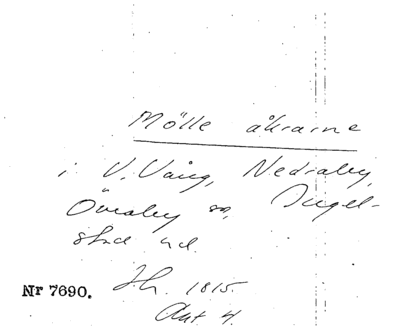 Mölle åkrarne
i V. Vång, Nedraby,
Övraby sn, Ingel-
stad hd.
Nr 7690.
1815.
Akt 4.